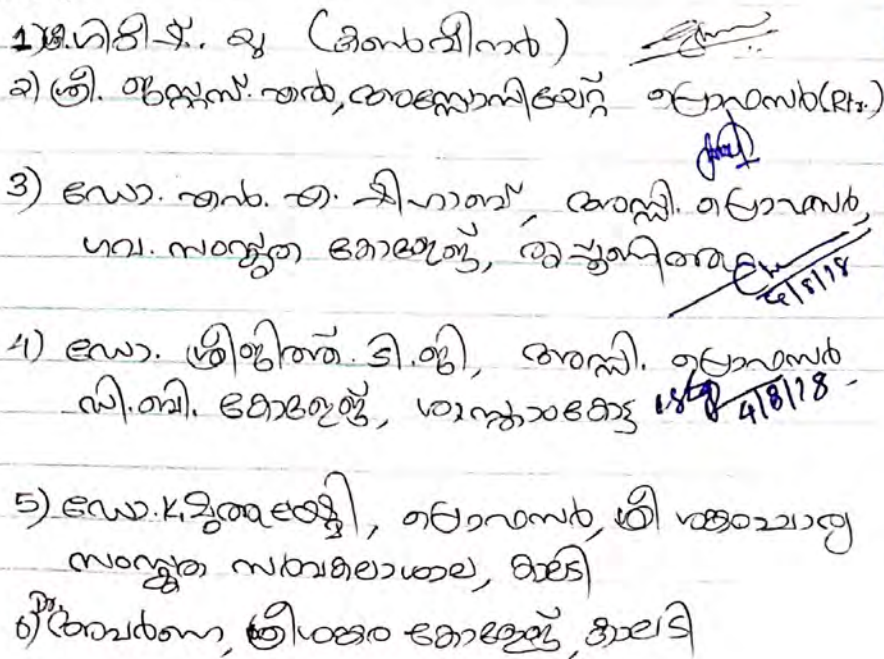 1) ഗിരീഷ്. യു (കൺവീനർ)
2) ശ്രീ. ജസ്റ്റസ്. എൽ, അസ്സോസിയേറ്റ് പ്രൊഫസർ (Rtr.)
3) ഡോ. എൻ. എ. ഷിഹാബ്, അസ്സി. പ്രൊഫസർ,
ഗവ. സംസ്കൃത കോളേജ്, തൃപ്പൂണിത്തുറ
4/8/18
4) ഡോ. ശ്രീജിത്ത്. ടി. ജി, അസ്സി. പ്രൊഫസർ
ഡി. ബി. കോളേജ്, ശാസ്താംകോട്ട 4/8/18
5) ഡോ. K. മുത്തുലക്ഷ്മി, പ്രൊഫസർ, ശ്രീ ശങ്കരാചാര്യ
സംസ്കൃത സർവകലാശാല, കാലടി
6) Dr. അപർണ, ശ്രീശങ്കര കോളേജ്, കാലടി